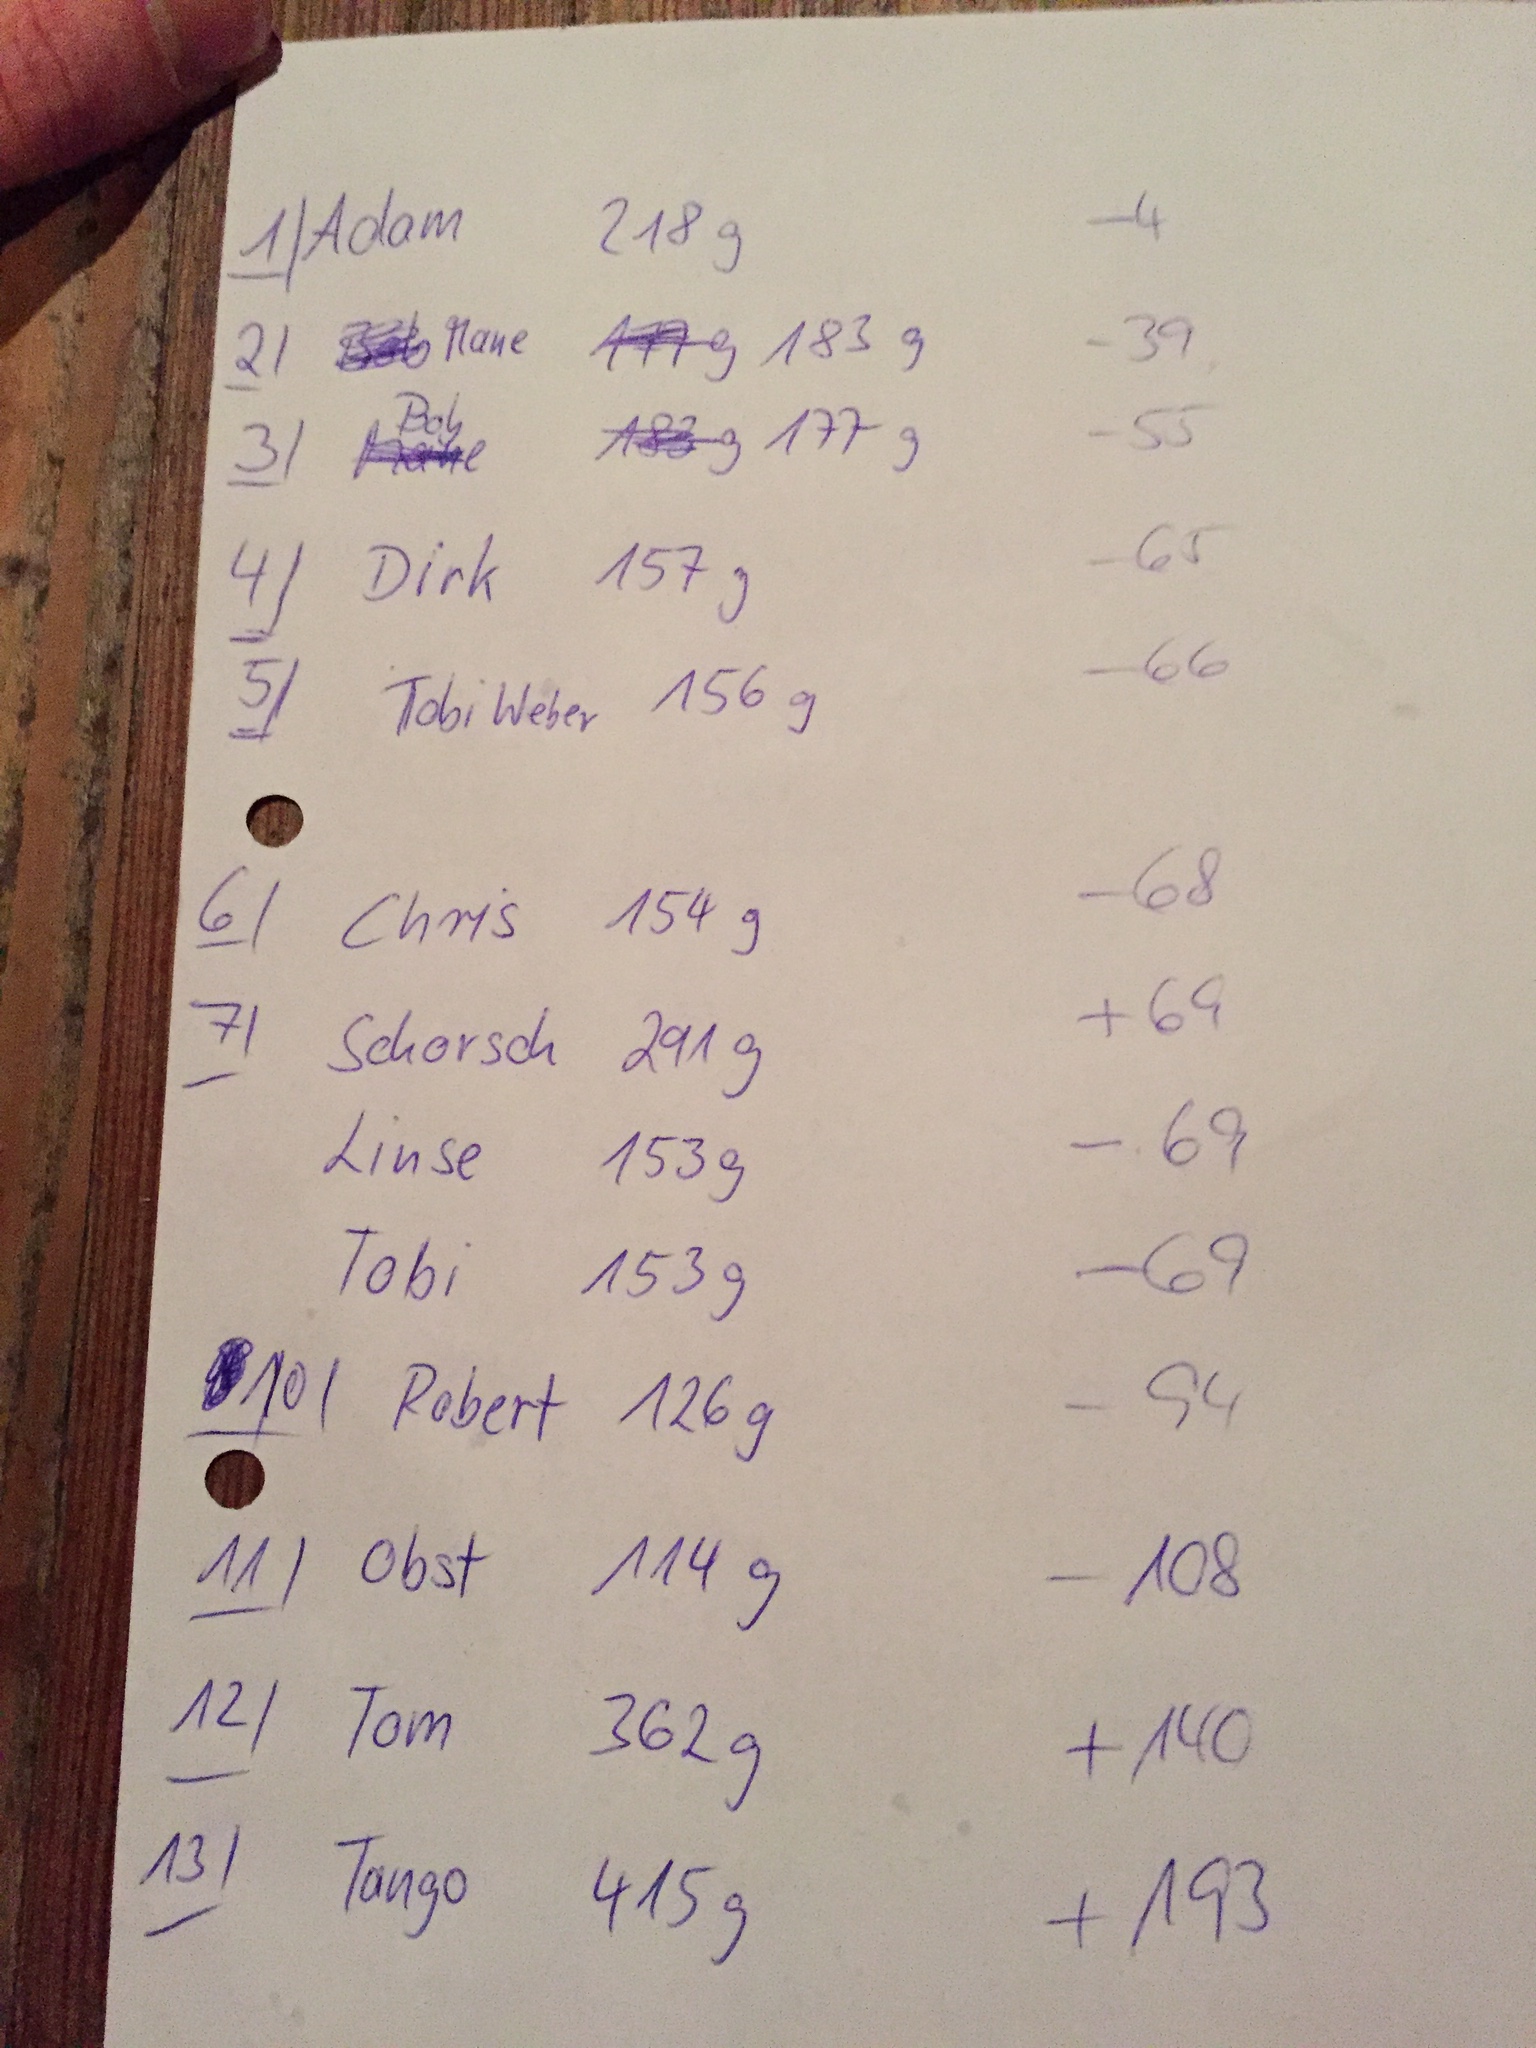 1) Adam 218 g -4
2) Mane 183 g -39
3) Bob 177 g -55
4) Dirk 157 g -65
5) Tobi Weber 156 g -66
6) Chris 154 g -68
7) Schorsch 291 g +69
Linse 153 g -69
Tobi 153 g -69
10) Robert 126 g -94
11) Obst 114 g -108
12) Tom 362 g +140
13) Tango 415 g +193